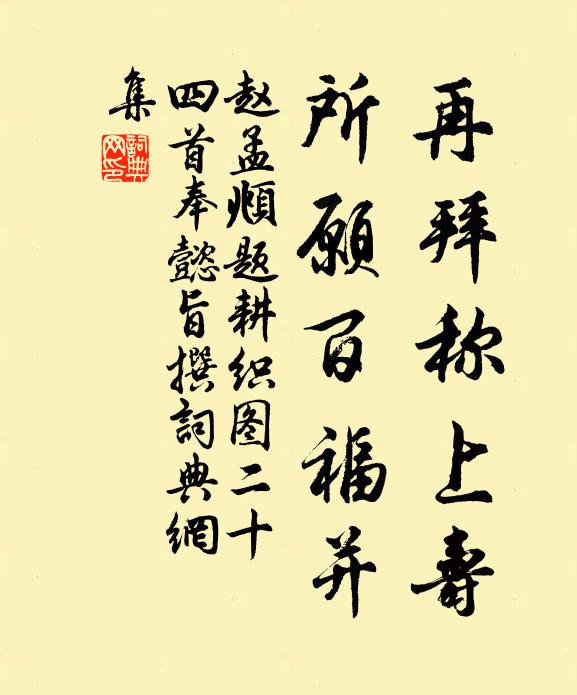 再拜称上壽
所願百福并
赵孟頫题耕织图二十
四首奉懿旨撰詞典網
集
詞典網印